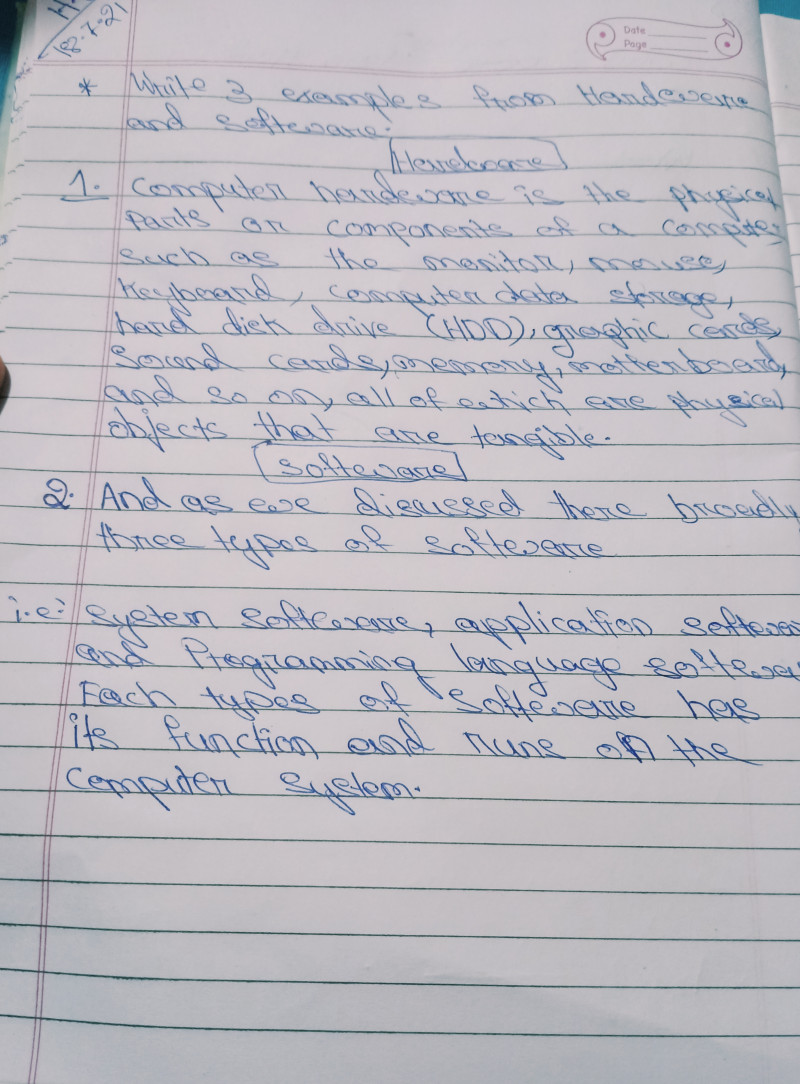 H.
18-7-21
Date
Page
* Write 3 examples from Hardware
and software.
Hardware
1. Computer hardware is the physical
parts or components of a computer
such as the monitor, mouse,
Keyboard, computer data storage,
hard disk drive (HDD), graphic cards,
Sound cards, memory, motterboard,
and so on, all of which are physical
objects that are tangible.
Software
2. And as we discussed there broadly
three types of software
i.e: System software, application softwar
and Programming language softwa
Each types of software has
its function and runs on the
Computer system.